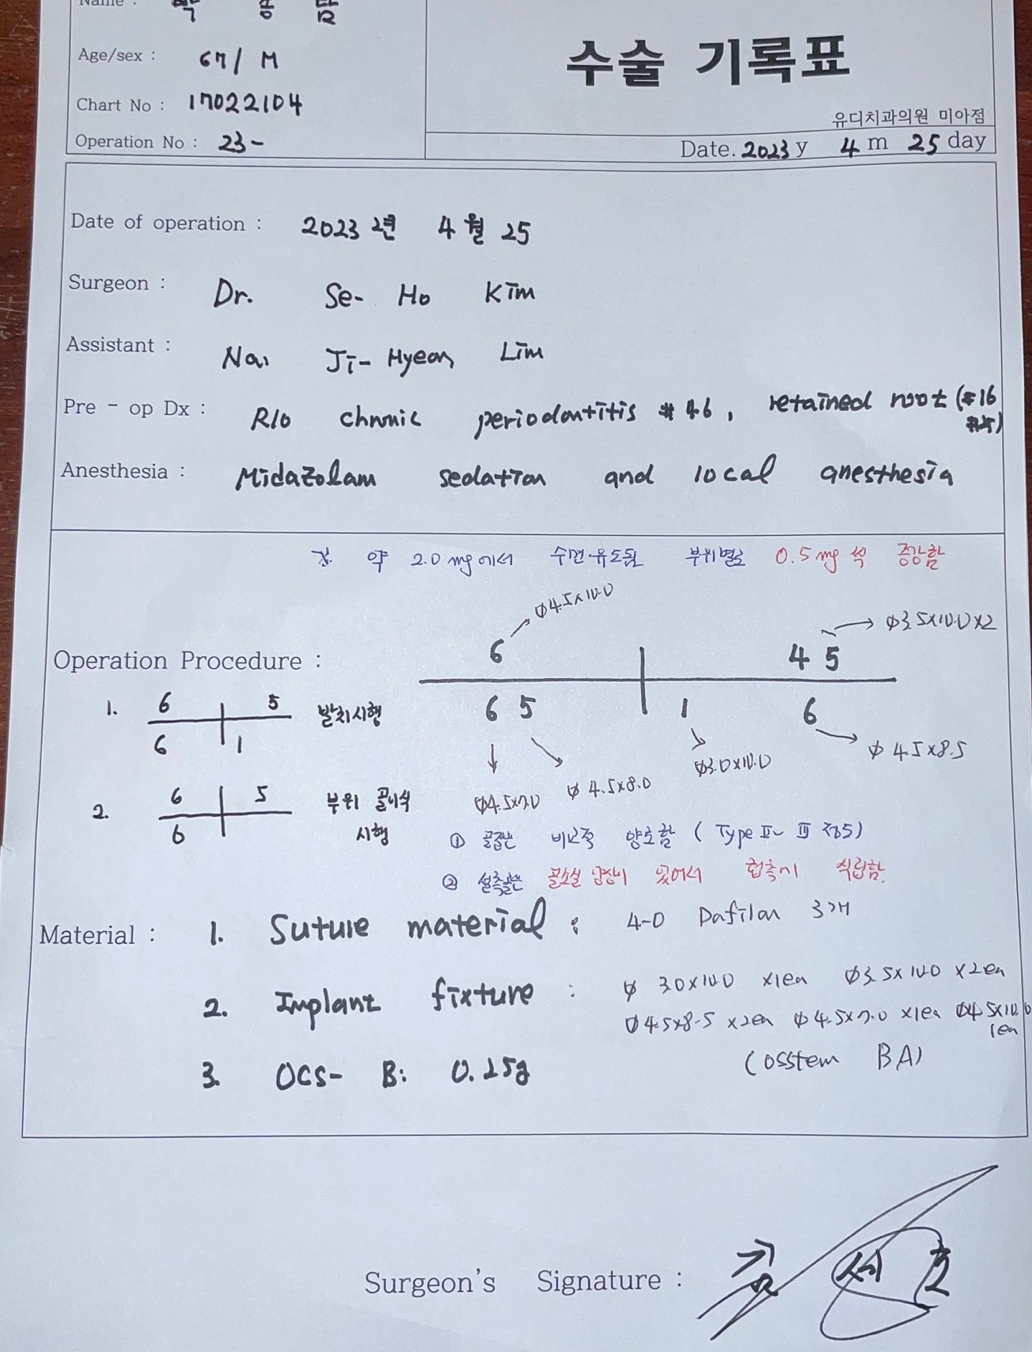 Name :
Age/sex : 67/ M
수술 기록표
Chart No : 17022104
유디치과의원 미아점
Operation No : 23-
Date. 2023 y 4 m 25 day
Date of operation : 2023 년 4 월 25
Surgeon : Dr. Se- Ho Kim
Assistant : Na, Ji- Hyeon Lim
Pre - op Dx : R/o chronic periodontitis #46, retained root (#16
Anesthesia : Midazolam sedation and local anesthesia
약 2.0 mg에서 수면유도됨 부위별로 0.5 mg 씩 증강함
Ø4.5x10.0
Ø3.5x10.0x2
6 4 5
Operation Procedure :
6 5 1 6
1. 6 5 발치시행
6 1
Ø 4.5x8.5
Ø3.0x10.0
Ø4.5x7.0 Ø 4.5x8.0
2. 6 5 부위 골이식
6 시행
① 골질은 비교적 양호함 ( Type II~ III 정도)
② 설측은 골소실 있어서 협측에 식립함.
Material : 1. Suture material : 4-0 Dafilon 3개
2. Implant fixture : Ø 3.0x10.0 x1ea Ø3.5x10.0 x2ea
Ø4.5x8.5 x2ea Ø4.5x7.0 x1ea Ø4.5x10.0
1ea
3. OCS- B: 0.25g (osstem BA)
Surgeon's Signature : 김 세 호